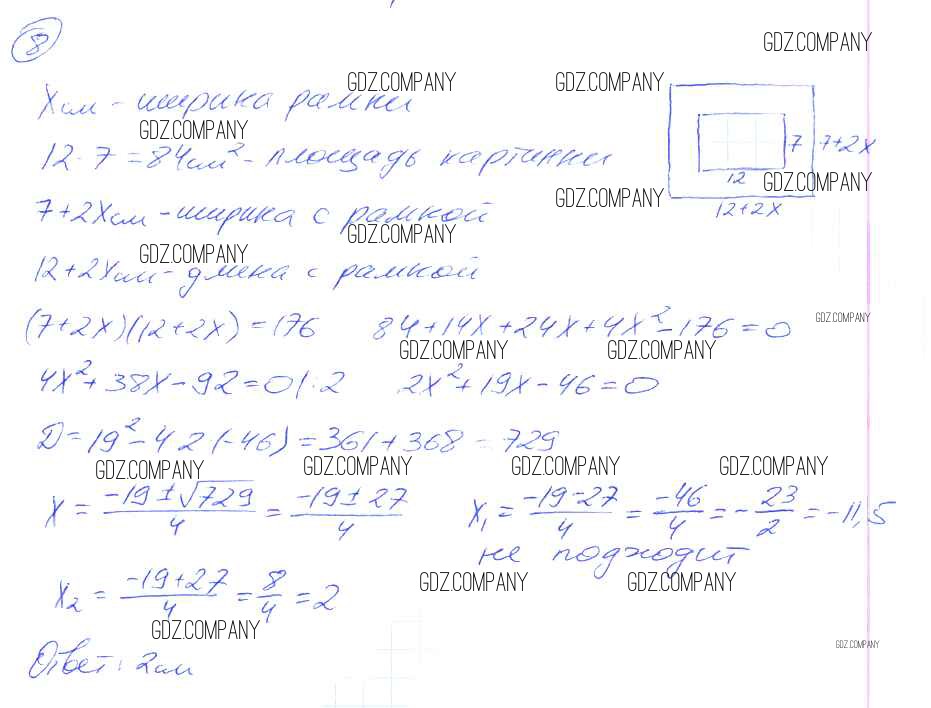 8
GDZ.COMPANY
GDZ.COMPANY GDZ.COMPANY
Xсм - ширина рамки
GDZ.COMPANY
12·7=84см² - площадь картинки
7 7+2X
12 GDZ.COMPANY
GDZ.COMPANY
12+2X
7+2Xсм - ширина с рамкой
GDZ.COMPANY
GDZ.COMPANY
12+2Xсм - длина с рамкой
(7+2X)(12+2X)=176 84+14X+24X+4X²-176=0
GDZ.COMPANY
GDZ.COMPANY GDZ.COMPANY
4X²+38X-92=0|·2 2X²+19X-46=0
D=19²-4·2(-46)=361+368=729
GDZ.COMPANY GDZ.COMPANY GDZ.COMPANY GDZ.COMPANY
X = (-19±√729)/4 = (-19±27)/4 X₁ = (-19-27)/4 = (-46)/4 = -23/2 = -11,5
не подходит
GDZ.COMPANY GDZ.COMPANY
X₂ = (-19+27)/4 = 8/4 = 2
GDZ.COMPANY
GDZ.COMPANY
Ответ: 2см